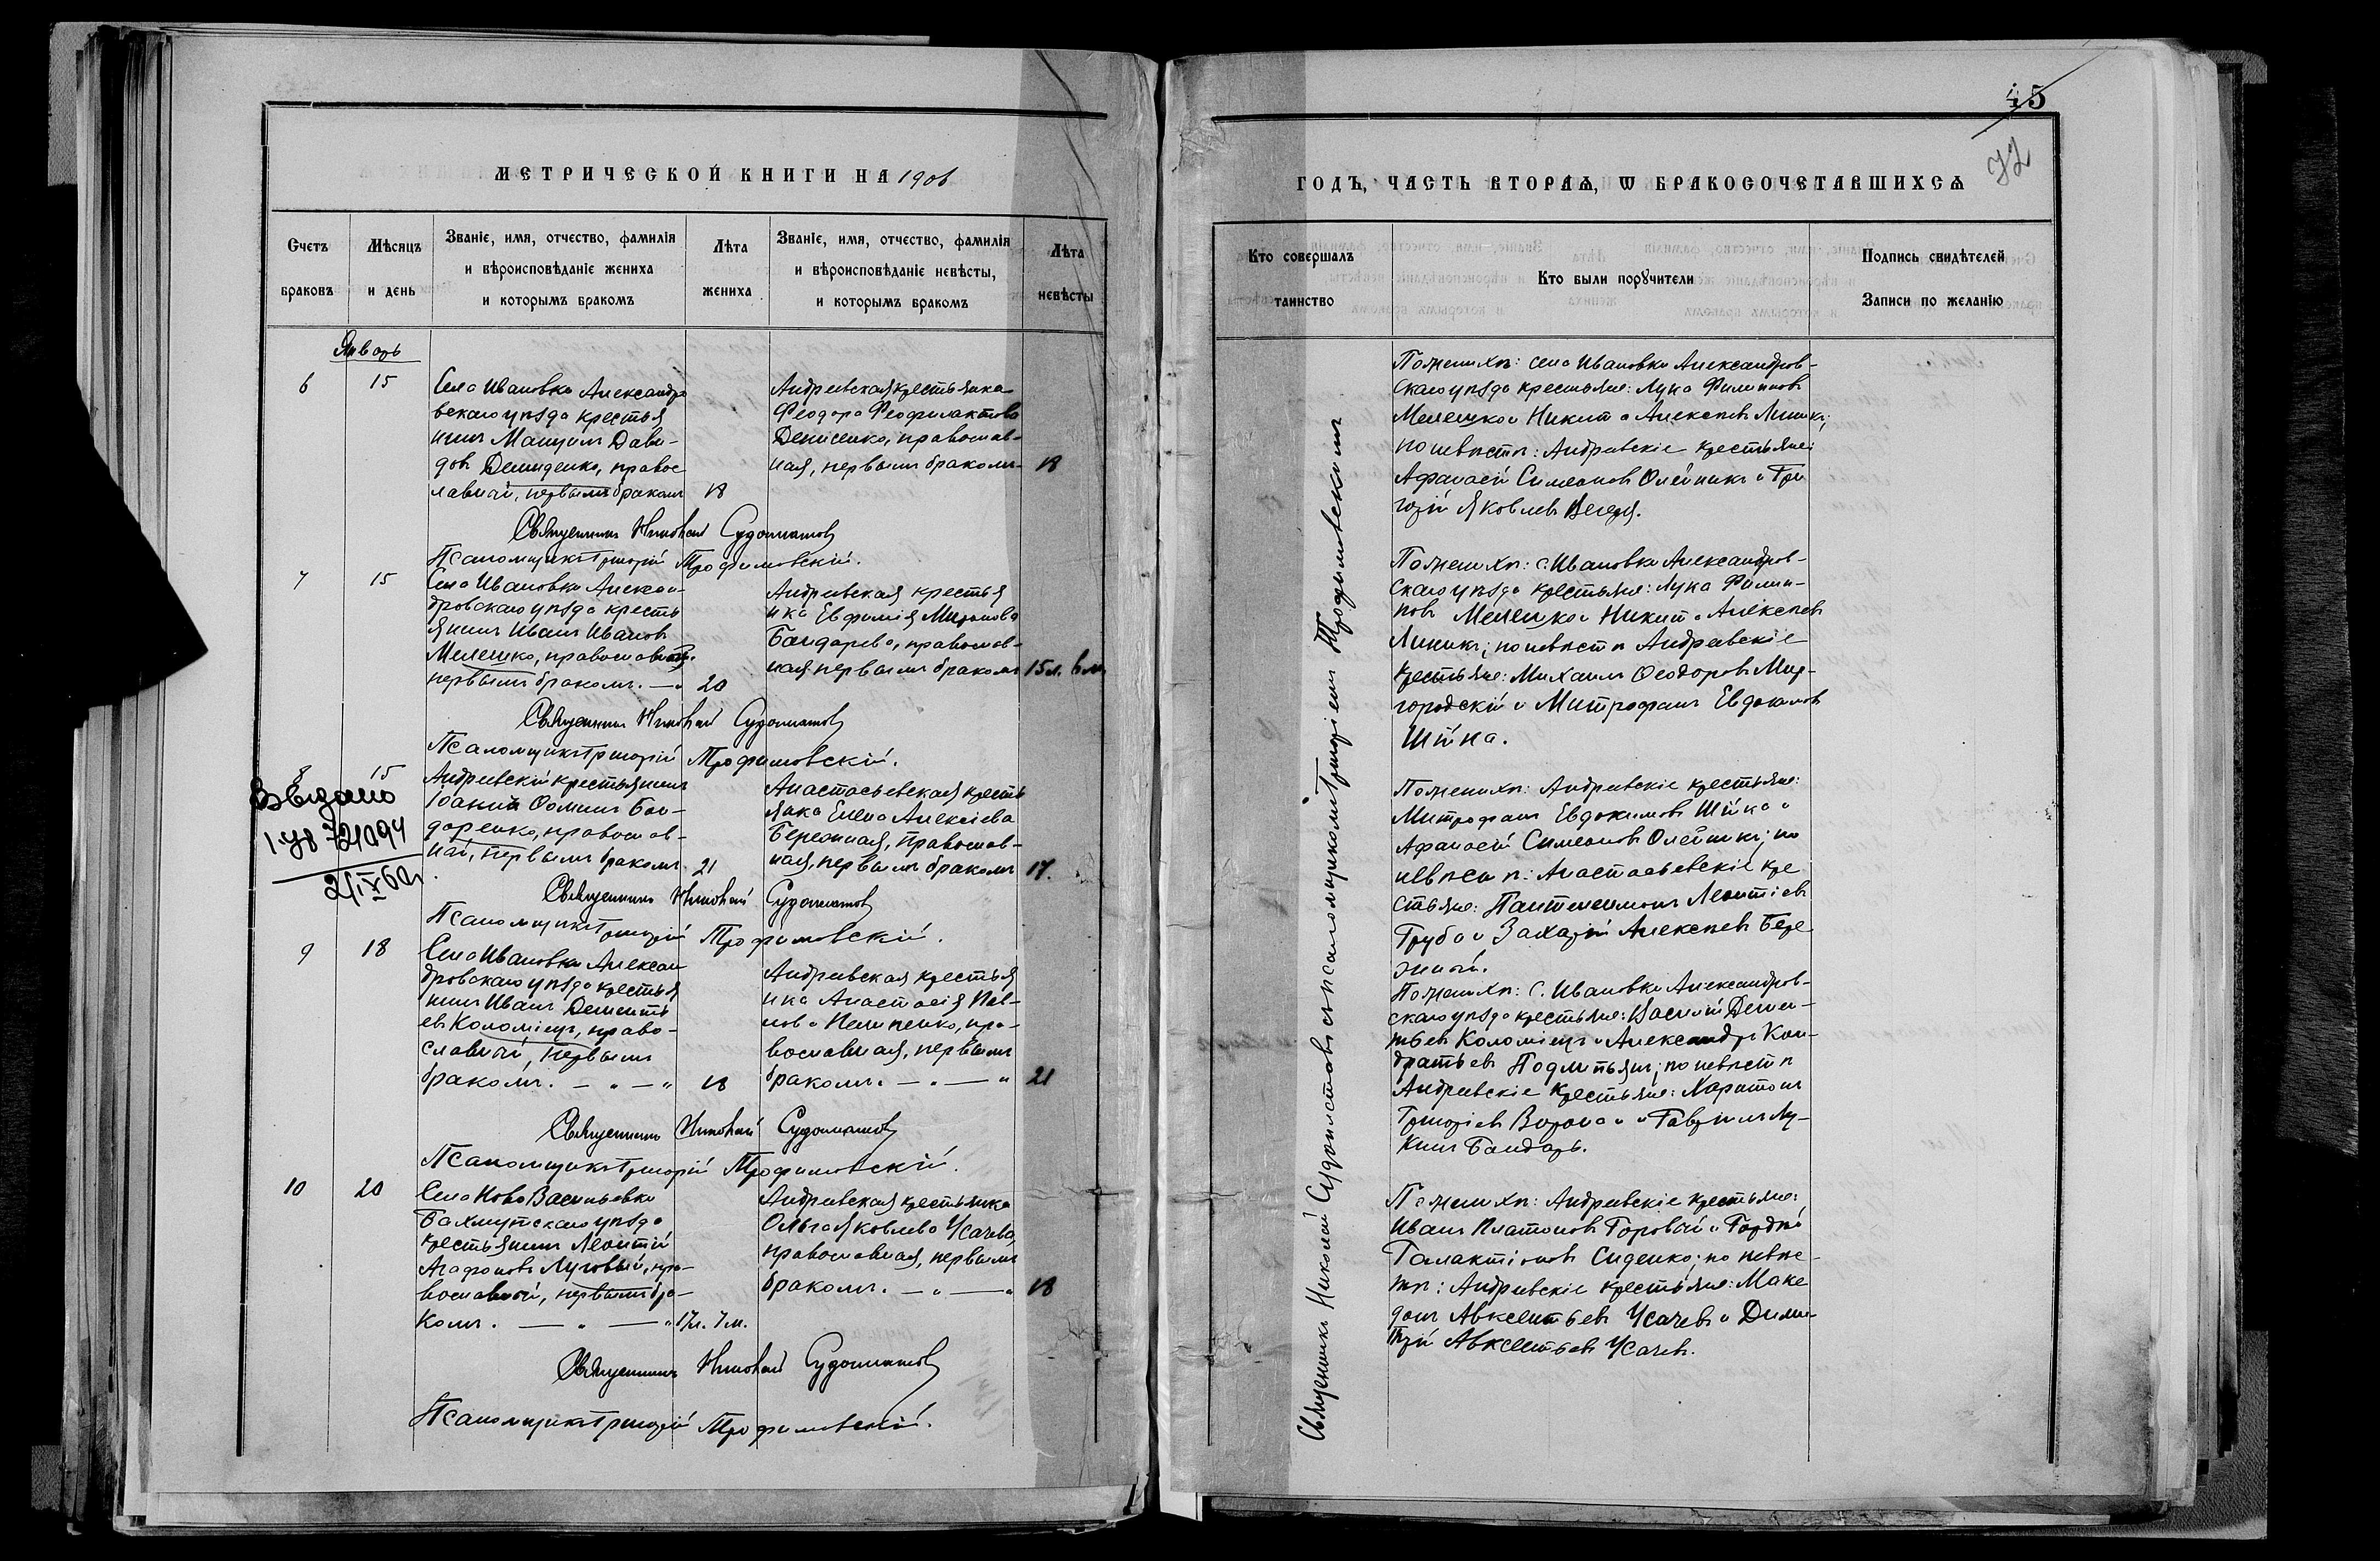 МЕТРИЧЕСКОЙ КНИГИ НА 1906
Счетъ браковъ
Мѣсяцъ и день
Званіе, имя, отчество, фамилія и вѣроисповѣданіе жениха и которымъ бракомъ
Лѣта жениха
Званіе, имя, отчество, фамилія и вѣроисповѣданіе невѣсты, и которымъ бракомъ
Лѣта невѣсты
Январь
6
15
Села Ивановки Александро
вскаго уѣзда крестья
нинъ Давы-
довъ Демиденко, правос
лавный, первымъ бракомъ
18
Андреевская крестьянка
Феодора Феофилактова
Денисенко, православ-
ная, первымъ бракомъ
18
Священникъ Николай Судоплатовъ
Псаломщикъ Григорій Трофимовскій.
7
15
Села Ивановки Алексан-
дровскаго уѣзда кресть
янинъ Иванъ Ивановъ
Мелешко, православный,
первымъ бракомъ.
20
Андреевская крестья
нка Евфимія Миронова
Бондарева, православ-
ная первымъ бракомъ
15 л. 6 м.
Священникъ Николай Судоплатовъ
Псаломщикъ Григорій Трофимовскій.
8
15
Видано
21/IV 62 г.
Андреевскій крестьянинъ
Іоакимъ Фоминъ Бон-
даренко, православ-
ный, первымъ бракомъ.
21
Анастасьевская кресть
янка Елена Алексіева
Бережная, православ-
ная, первымъ бракомъ
17.
Священникъ Николай Судоплатовъ
Псаломщикъ Григорій Трофимовскій.
9
18
Села Ивановки Алексан
дровскаго уѣзда крестья
нинъ Иванъ Дементь
евъ Коломіецъ, право-
славный, первымъ
бракомъ.
18
Андреевская крестья
нка Анастасія
Пелипенко, пра-
вославная, первымъ
бракомъ.
21
Священникъ Николай Судоплатовъ
Псаломщикъ Григорій Трофимовскій.
10
20
Села Ново Васильевки
Бахмутскаго уѣзда
крестьянинъ Леонтій
Агафоновъ Луговый, пра-
вославный, первымъ бра-
комъ.
17 л. 7 м.
Андреевская крестьянка
Ольга Яковлева Усачева,
православная, первымъ
бракомъ.
18
Священникъ Николай Судоплатовъ
Псаломщикъ Григорій Трофимовскій.
45
72
ГОДЪ, ЧАСТЬ ВТОРАѦ, Ѡ БРАКОСОЧЕТАВШИХСѦ
Кто совершалъ таинство
Кто были порꙋчители
Подпись свидѣтелей Записи по желанію
Священникъ Николай Судоплатовъ съ псаломщикомъ Григоріемъ Трофимовскимъ
По женихѣ: села Ивановки Александров-
скаго уѣзда крестьяне: Лука Филипповъ
Мелешко и Никита Алексѣевъ Линикъ;
по невѣстѣ: Андреевскіе крестьяне:
Афанасій Симеоновъ Олейникъ и Гри
горій Яковлевъ
По женихѣ: с. Ивановки Александров-
скаго уѣзда крестьяне: Лука Филип-
повъ Мелешко и Никита Алексѣевъ
Линикъ; по невѣстѣ Андреевскіе
крестьяне: Михаилъ Феодоровъ Мир-
городскій и Митрофанъ Евдокимовъ
Шійка.
По женихѣ: Андреевскіе крестьяне:
Митрофанъ Евдокимовъ Шійка и
Афанасій Симеоновъ Олейникъ; по
невѣстѣ: Анастасьевскіе кре
стьяне: Пантелеимонъ Леонтіевъ
Труба и Захарій Алексѣевъ Бере
жный.
По женихѣ: с. Ивановки Александров-
скаго уѣзда крестьяне: Василій Демен-
тьевъ Коломіецъ и Александръ Кон-
дратьевъ по невѣстѣ
Андреевскіе крестьяне: Харитонъ
Григоріевъ Ворона и Гавріилъ Лу-
кинъ Бондарь.
По женихѣ: Андреевскіе крестьяне:
Иванъ Платоновъ Горовый и Гордѣй
Галактіоновъ Сиденко; по невѣс-
тѣ: Андреевскіе крестьяне: Маке
донъ Авксентьевъ Усачевъ и Дими-
трій Авксентьевъ Усачевъ.